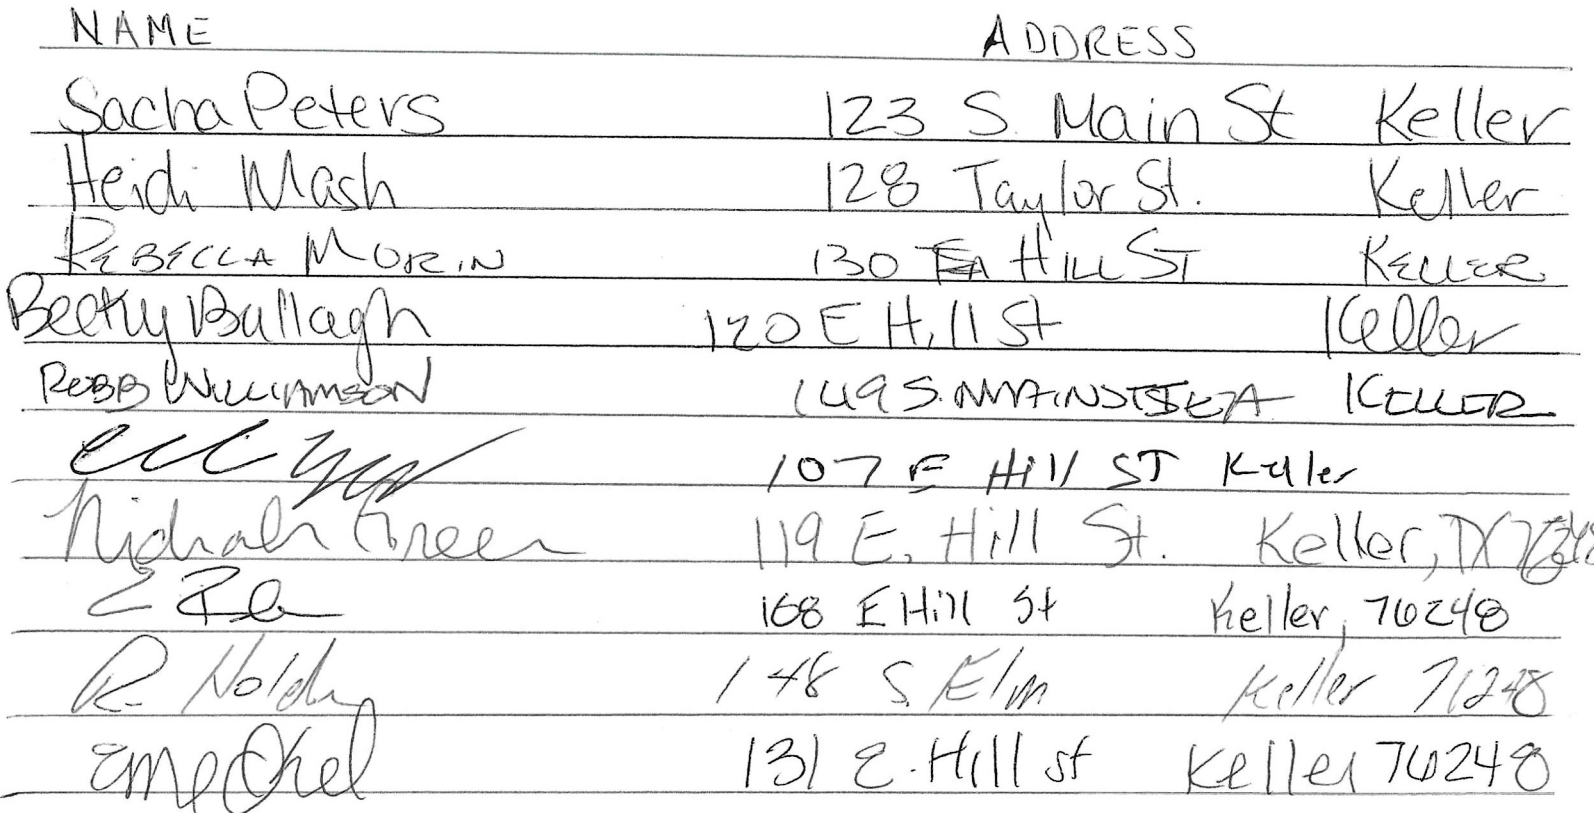 NAME ADDRESS
Sacha Peters 123 S. Main St Keller
Heidi Mash 128 Taylor St. Keller
REBECCA MORIN 130 HILL ST KELLER
Becky Bullagh 120 E Hill St Keller
ROBB WILLIAMSON 149 S. MAIN ST KELLER
107 E Hill ST Keller
Green 119 E. Hill St. Keller, TX
168 E Hill St Keller, 76248
R. 148 S. Elm Keller 76248
131 E. Hill st Keller 76248